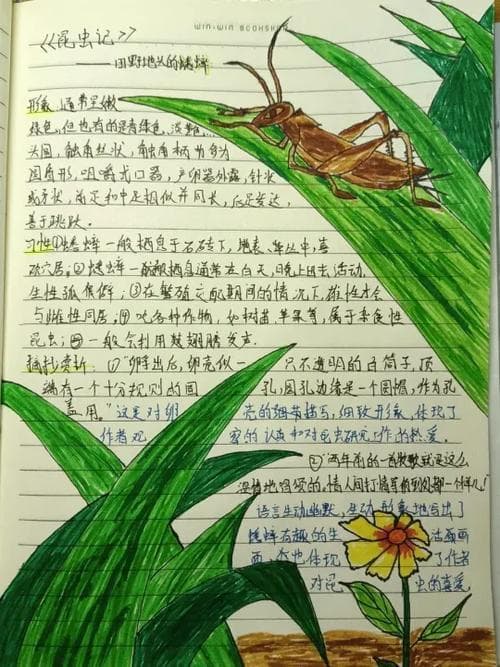 WIN-WIN BOOKSHOP
《昆虫记》
——田野地头的蟋蟀
形象：通常呈嫩
绿色，但也有的呈青绿色，淡黄
头圆，触角丝状，触角柄为
圆角形，咀嚼式口器，产卵器外露，针状
或矛状，前足和中足相似并同长，后足发达，
善于跳跃。
习性①蟋蟀一般栖息于石砖下，地表、草丛中，喜
欢穴居。②蟋蟀一般栖息通常在白天，晚上出去活动，
生性孤僻；③在繁殖交配期间的情况下，雄性才会
与雌性同居；④吃各种作物，如树苗、苹果等，属于杂食性
昆虫；⑤一般会利用鼓翅膀发声。
摘抄赏析 ①"卵产出后，卵壳似一 只不透明的白筒子，顶
端有一个十分规则的圆 孔，圆孔边缘是一个圆帽，作为孔
盖用。"这是对卵 壳的细节描写，细致形象，体现了
作者观 察的认真和对昆虫研究工作的热爱。
②"两年前的一首歌就是这么
深情地唱颂的。情人间打情骂俏到处都一个样儿！
语言生动幽默，生动形象地写出了
蟋蟀有趣的生 活画
面，也体现 了作者
对昆 虫的喜爱